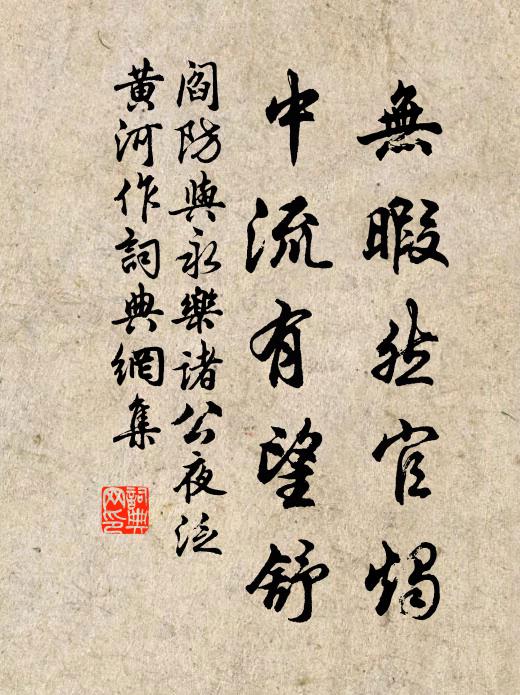 無暇然官燭
中流有望舒
閻防與永樂諸公夜泛
黃河作詞典網集
詞典網印